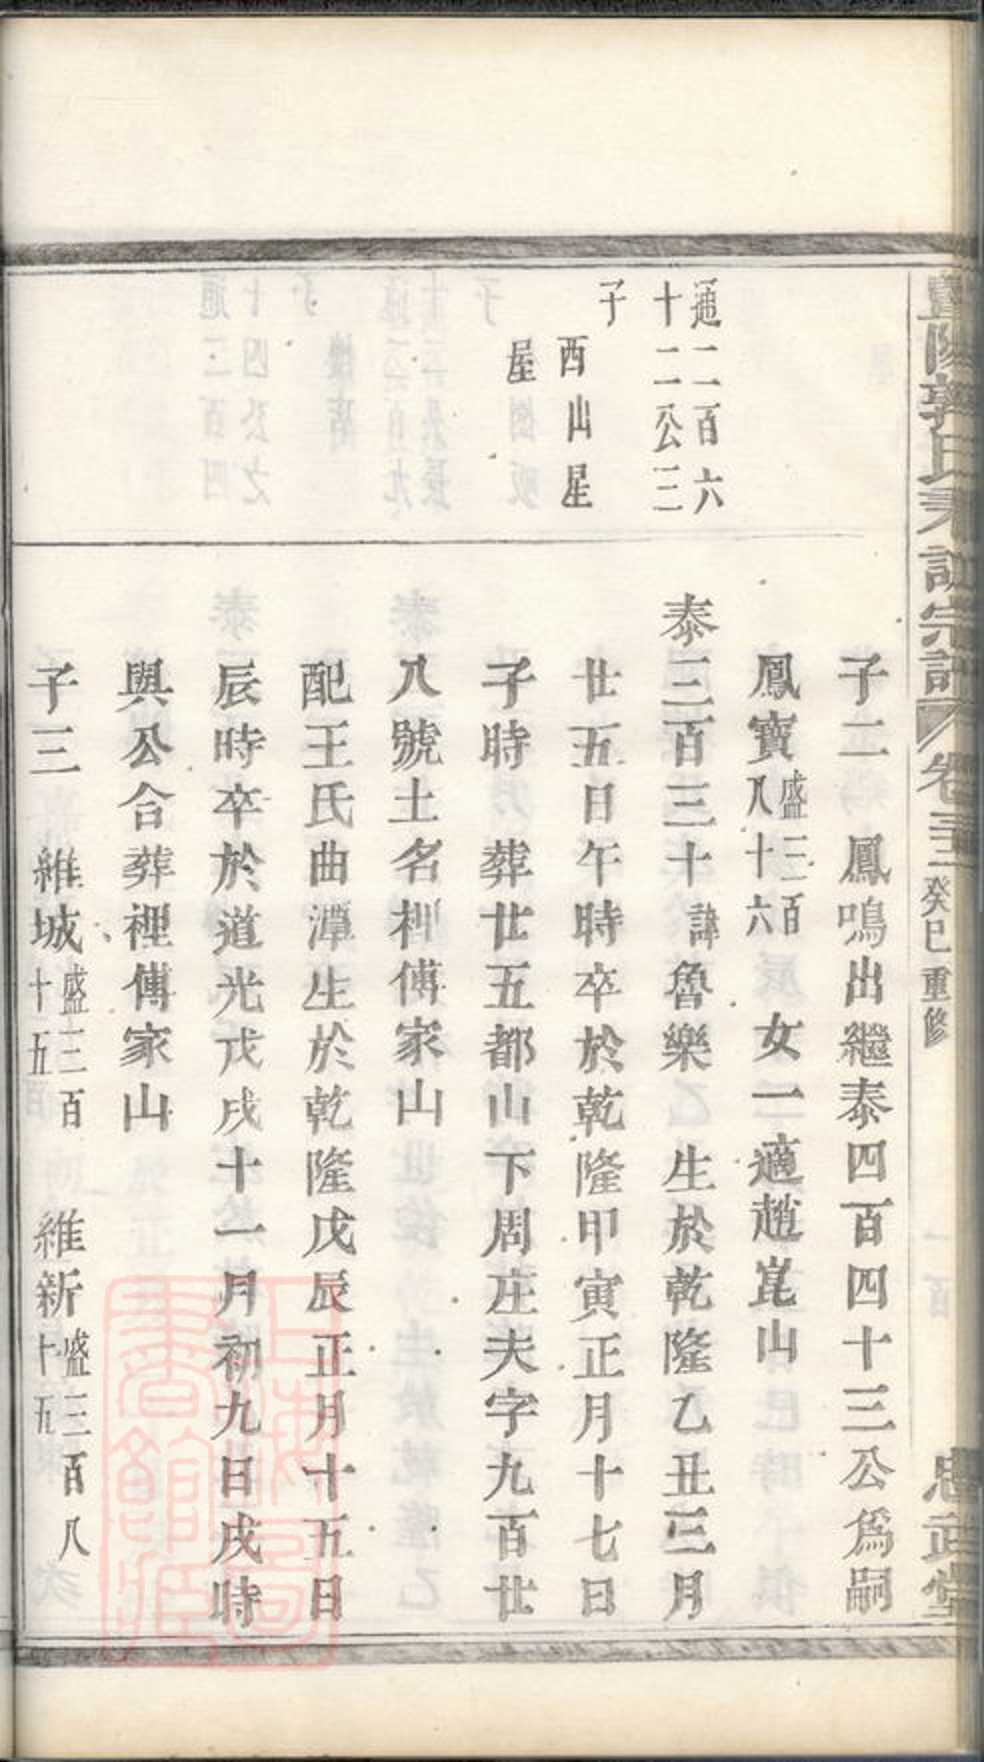 暨陽郭氏 宗譜 卷三 癸巳重修 忠武堂
通二百六
十二公三
子
西山星
屋
子二 鳳鳴出繼泰四百四十三公爲嗣
鳳寶盛三百八十六 女一適趙崑山
泰三百三十諱魯樂 生於乾隆乙丑三月
廿五日午時卒於乾隆甲寅正月十七日
子時 葬廿五都山下周庄夫字九百廿
八號土名裡傅家山
配王氏曲潭生於乾隆戊辰正月十五日
辰時卒於道光戊戌十一月初九日戌時
與公合葬裡傅家山
子三 維城盛三百十五 維新盛三百八十五